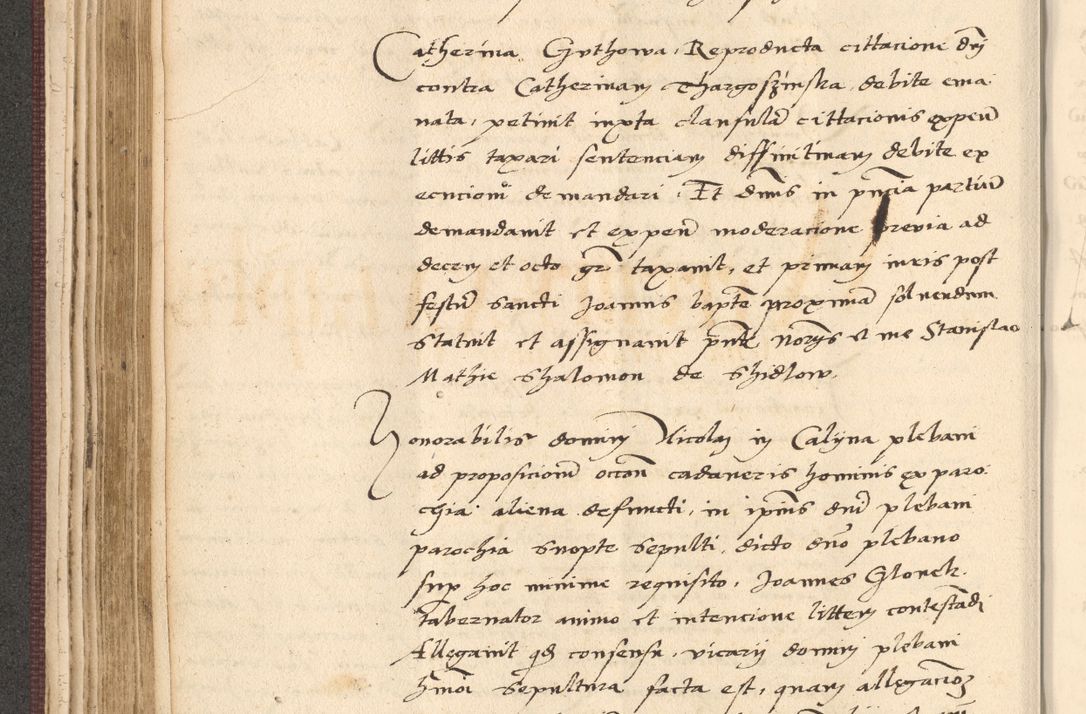 Catherina Gythowa, Reproducta cittacione dnj
contra Catherinam Thargoszinska debite ema-
nata, petinit iuxta clausulã cittacionis expeñ
littis taxari sentenciam diffinitiuam debite ex
ecucioni demandari. Et dnus in pñcia partiũ
demandauit et expeñ moderacione preuia ad
decem et octo gr taxauit, et primam iuris post
festũ sancti Joannis bapte proximã soluendum
statuit et assignauit pñte notrys et me Stanislao
Mathie Shalomon de Shidlow.
Honorabilis domini Nicolai in Calyna plebani
ad proposicionẽ occoñ cadaueris hominis ex paro-
chia aliena defuncti, in ipius dni plebani
parochia snopte sepulti, dicto dno plebano
sup hoc minime requisito, Joannes Glonek
tabernator animo et intencione littem contestãdj
Allegauit qd consensu vicarij domini plebani
hmoi sepultura facta est, quam allegacioẽ